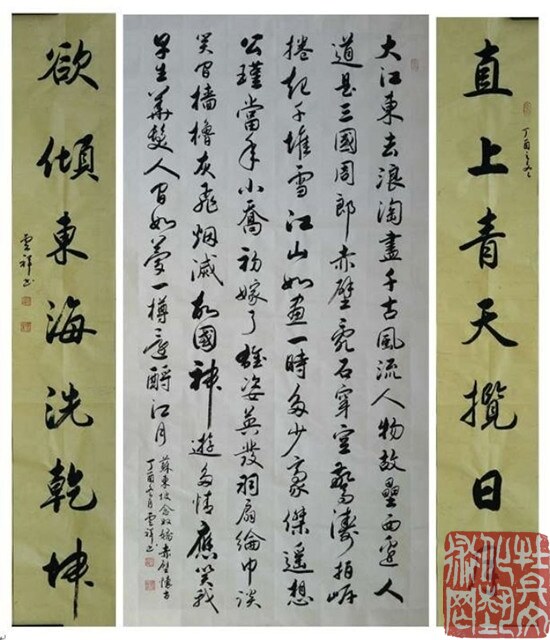 直上青天攬日
丁酉之冬
大江東去浪淘盡千古風流人物故壘西邊人
道是三國周郎赤壁亂石穿空驚濤拍岸
捲起千堆雪江山如畫一時多少豪傑遙想
公瑾當年小喬初嫁了雄姿英發羽扇綸巾談
笑間檣櫓灰飛烟滅故國神遊多情應笑我
早生華髮人間如夢一樽還酹江月
蘇東坡念奴嬌赤壁懷古
丁酉冬月雲祥書
欲傾東海洗乾坤
雲祥書